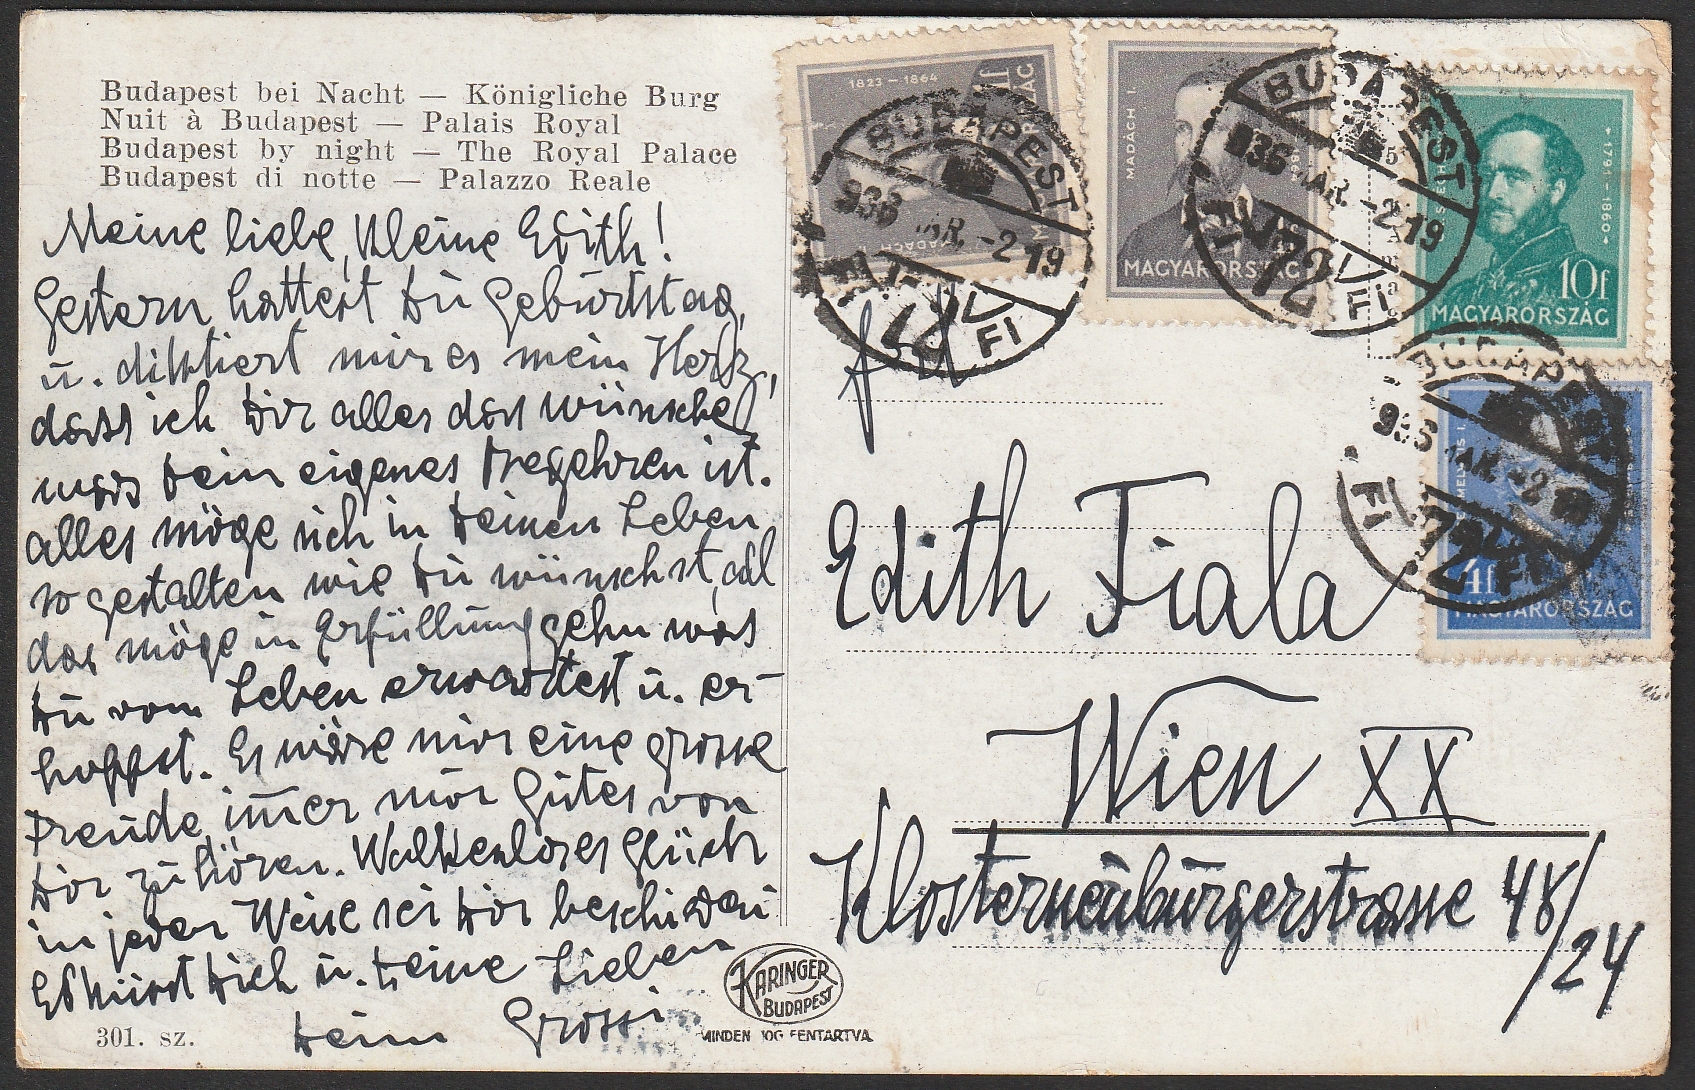 Budapest bei Nacht — Königliche Burg
Nuit à Budapest — Palais Royal
Budapest by night — The Royal Palace
Budapest di notte — Palazzo Reale
Meine liebe, kleine Edith!
Gestern hattest Du Geburtstag,
u. diktiert mir es mein Herz,
dass ich Dir alles das wünsche,
was Dein eigenes Begehren ist.
alles möge sich in Deinen Leben
so gestalten wie Du wünschst, all
das möge in Erfüllung gehn was
Du vom Leben erwartest u. er-
hoffst. Es wäre mir eine grosse
Freude immer nur Gutes von
Dir zu hören. Wolkenloses Glück
in jeder Weise sei Dir beschieden
Es küsst Dich u. Deine Lieben
Dein Grossi
301. sz.
KARINGER
BUDAPEST
MINDEN JOG FENTARTVA
1823 – 1864
MADÁCH I.
MAGYARORSZÁG
BUDAPEST
936 MÁR. -2 19
72
FI
MADÁCH I.
MAGYARORSZÁG
BUDAPEST
936 MÁR. -2 19
72
FI
1791-1860
10f
MAGYARORSZÁG
BUDAPEST
936 MÁR. -2 19
72
FI
4f
MAGYARORSZÁG
Edith Fiala
Wien XX
Klosterneuburgerstrasse 48/24